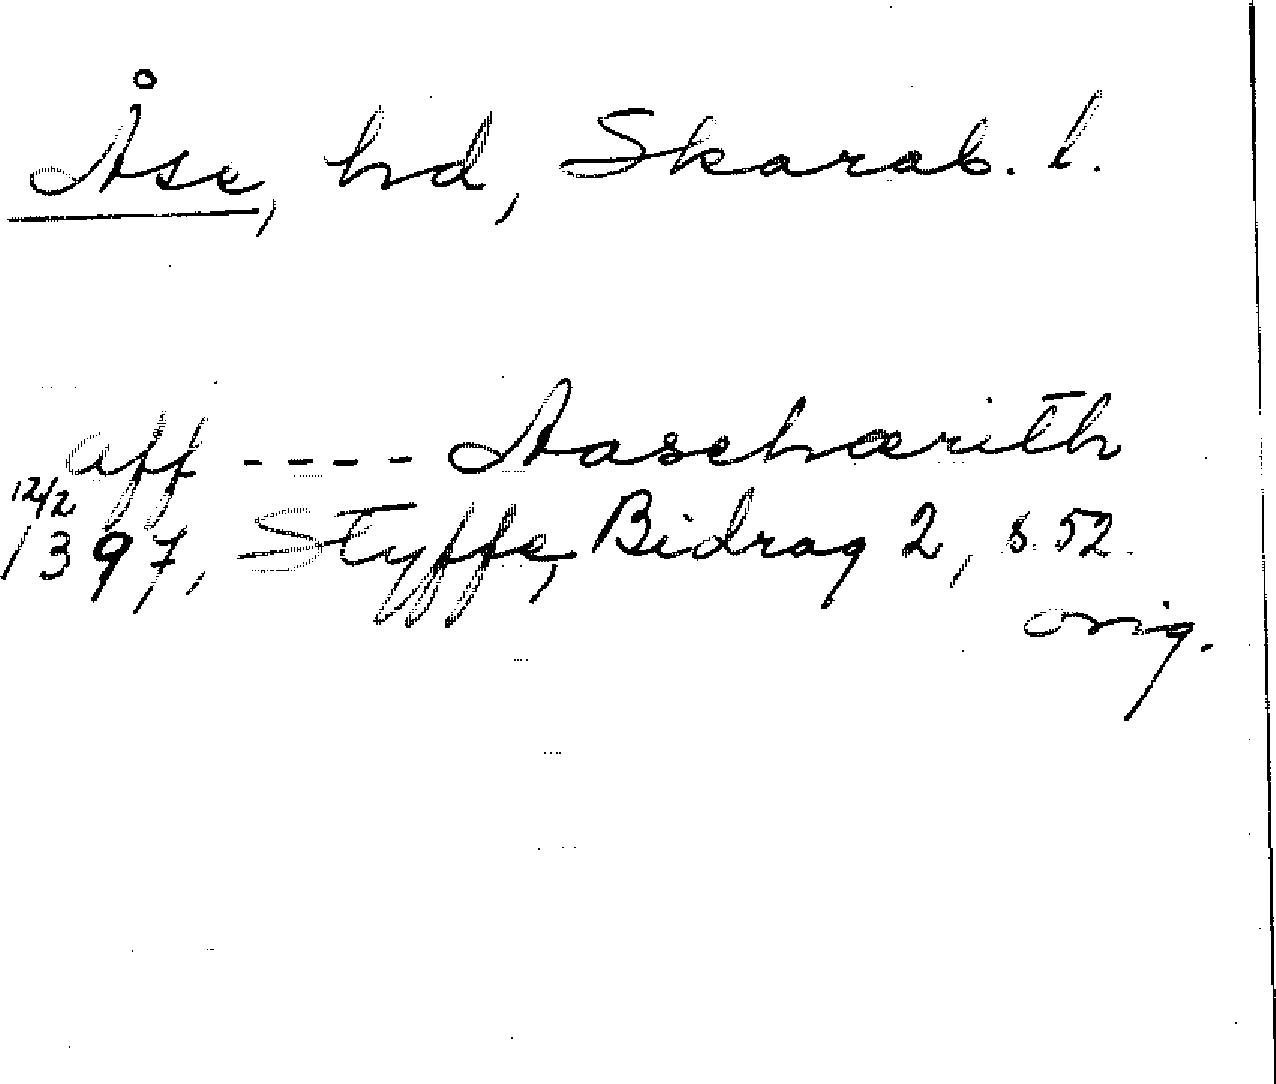 Åse, hd, Skarab. l.
aff ---- Aasehærith
12/2
1397, Styffe, Bidrag 2, s. 52.
orig.